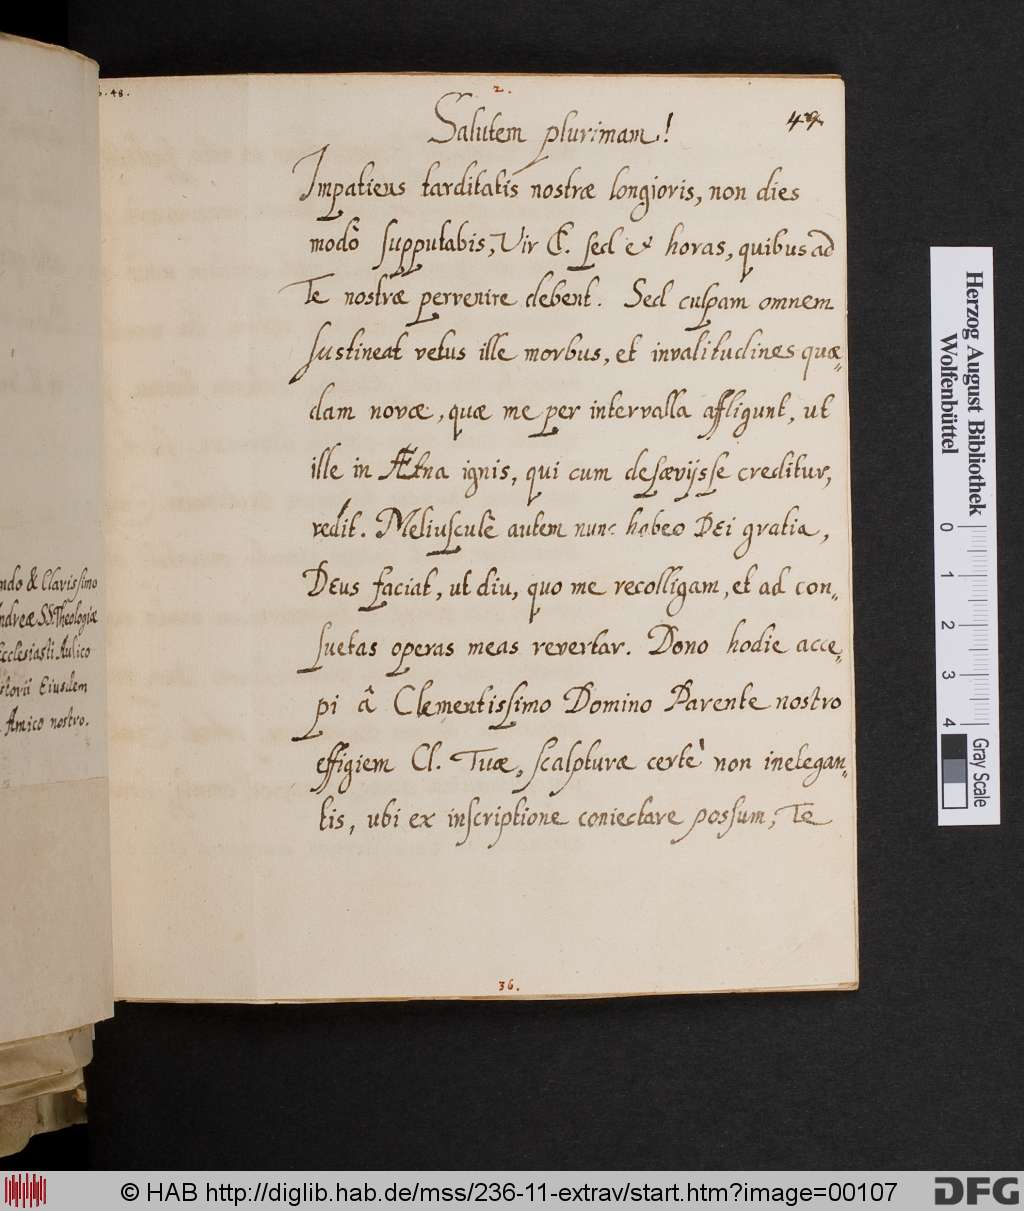 2.
49.
Salutem plurimam!
Impatiens tarditatis nostræ longioris, non dies
modò supputabis, Vir Cl. sed et horas, quibus ad
Te nostræ pervenire debent. Sed culpam omnem
sustineat vetus ille morbus, et invalitudines quæ„
dam novæ, quæ me per intervalla affligunt, ut
ille in Ætna ignis, qui cum desævijsse creditur,
redit. Meliusculè autem nunc habeo DEi gratia,
DEus faciat, ut diu, quo me recolligam, et ad con„
suetas operas meas revertar. Dono hodie acce„
pi â Clementissimo Domino Parente nostro
effigiem Cl. Tuæ, scalpturæ certè non inelegan„
tis, ubi ex inscriptione coniectare possum, Te
36.
48.
ndo & Clarissimo
ndreæ SS. Theologiæ
Ecclesiasti Aulico
Eiusdem
Amico nostro.
Herzog August Bibliothek
Wolfenbüttel
0 1 2 3 4
Gray Scale
© HAB http://diglib.hab.de/mss/236-11-extrav/start.htm?image=00107
DFG